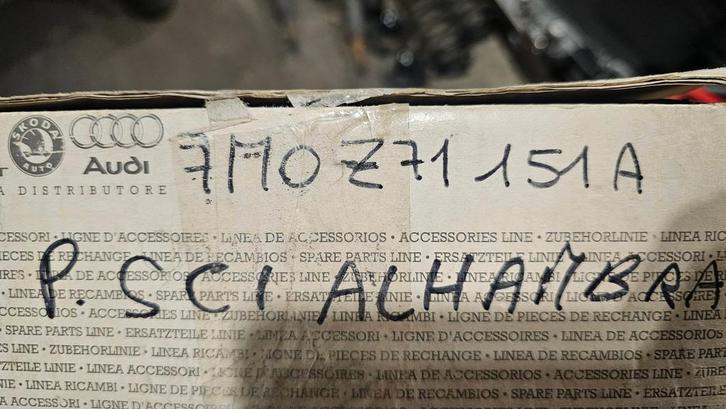 ŠKODA AUTO
Audi
A DISTRIBUTORE
7M0Z71151A
P. SCI ALHAMBRA
CESSORI • LIGNE D'ACCESSOIRES • LINEA DE ACCESORIOS • ACCESSORIES LINE • ZUBEHORLINIE • LINEA RIC
IECES DE RECHANGE • LINEA DE RECAMBIOS • SPARE PARTS LINE • ERSATZTEILE LINIE • LINEA ACCES
IRES • LINEA DE ACCESORIOS • ACCESSORIES LINE • ZUBEHORLINIE • LINEA RICAMBI
• LINEA DE RECAMBIOS • SPARE PARTS LINE • ERSATZTEILE LINIE • LINEA ACCESSORI
ACCESSORIES LINE • ZUBEHORLINIE • LINEA RICAMBI • LIGNE DE PIECES DE RECHANGE • LINEA
• SPARE PARTS LINE • ERSATZTEILE LINIE • LINEA ACCESSORI • LIGNE D'ACCESSOIRES • LINEA DE
ES LINE • ZUBEHORLINIE • LINEA RICAMBI • LIGNE DE PIECES DE RECHANGE • LINEA DE RECAMBIOS • SPARE PAR
TZTEILE LINIE • LINEA ACCESSORI • LIGNE D'ACCESSOIRES • LINEA DE ACCESORIOS • ACCESSORIES LINE
LINEA RICAMBI • LIGNE DE PIECES DE RECHANGE • LINEA DE RECAMBIOS • SPARE PARTS LINE • ERSATZTEI
A ACCESSORI • LIGNE D'ACCESSOIRES • LINEA DE ACCESORIOS • ACCESSORIES LINE